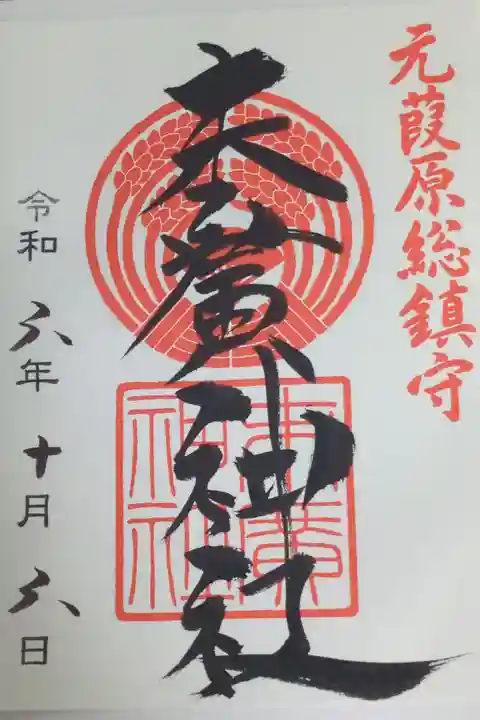 元葭原総鎮守
末廣神社
末廣
神社
令和六年十月六日